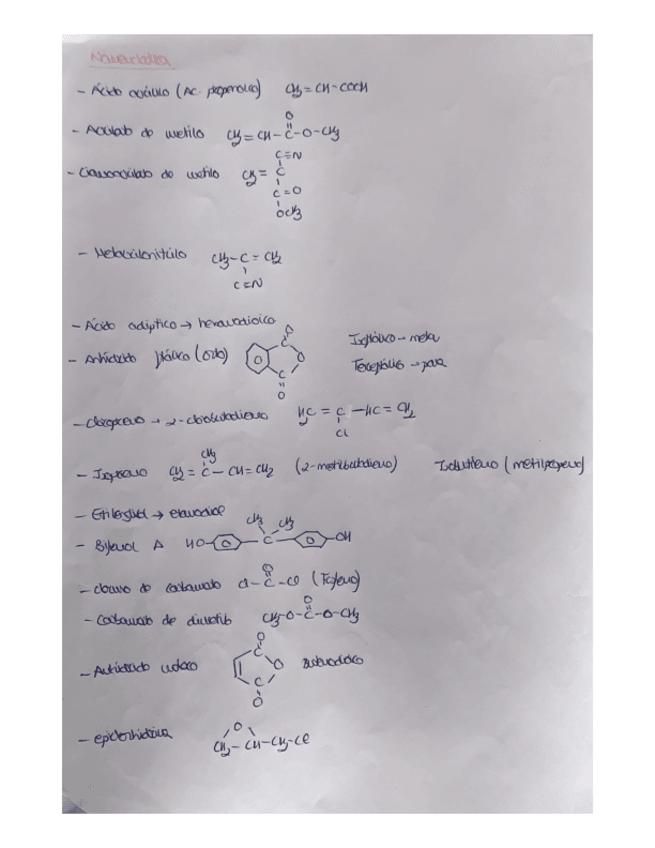 Nomenclatura
- Ácido acrílico (Ac. propenoico) CH2 = CH - COOH
- Acrilato de metilo CH2 = CH - C - O - CH3
O
- Cianoacrilato de metilo CH2 = C
C≡N
C = O
OCH3
- Metacrilonitrilo CH3 - C = CH2
C≡N
- Ácido adíptico → hexanodioico
- Anhídrido ftálico (orto) C O O C O Isoftálico → meta
Tereftálico → para
- Cloropreno → 2-clorobutadieno H2C = C - HC = CH2
Cl
- Isopreno CH2 = C - CH = CH2 (2-metilbutadieno) Isobutileno (metilpropeno)
CH3
- Etilenglicol → etanodiol
- Bisfenol A HO C OH
CH3 CH3
- cloruro de carbonilo Cl - C - Cl (Fosgeno)
O
- Carbonato de dimetilo CH3 - O - C - O - CH3
O
- Anhídrido maleico C O O C O butenodioico
- epiclorhidrina CH2 - CH - CH2 - Cl
O